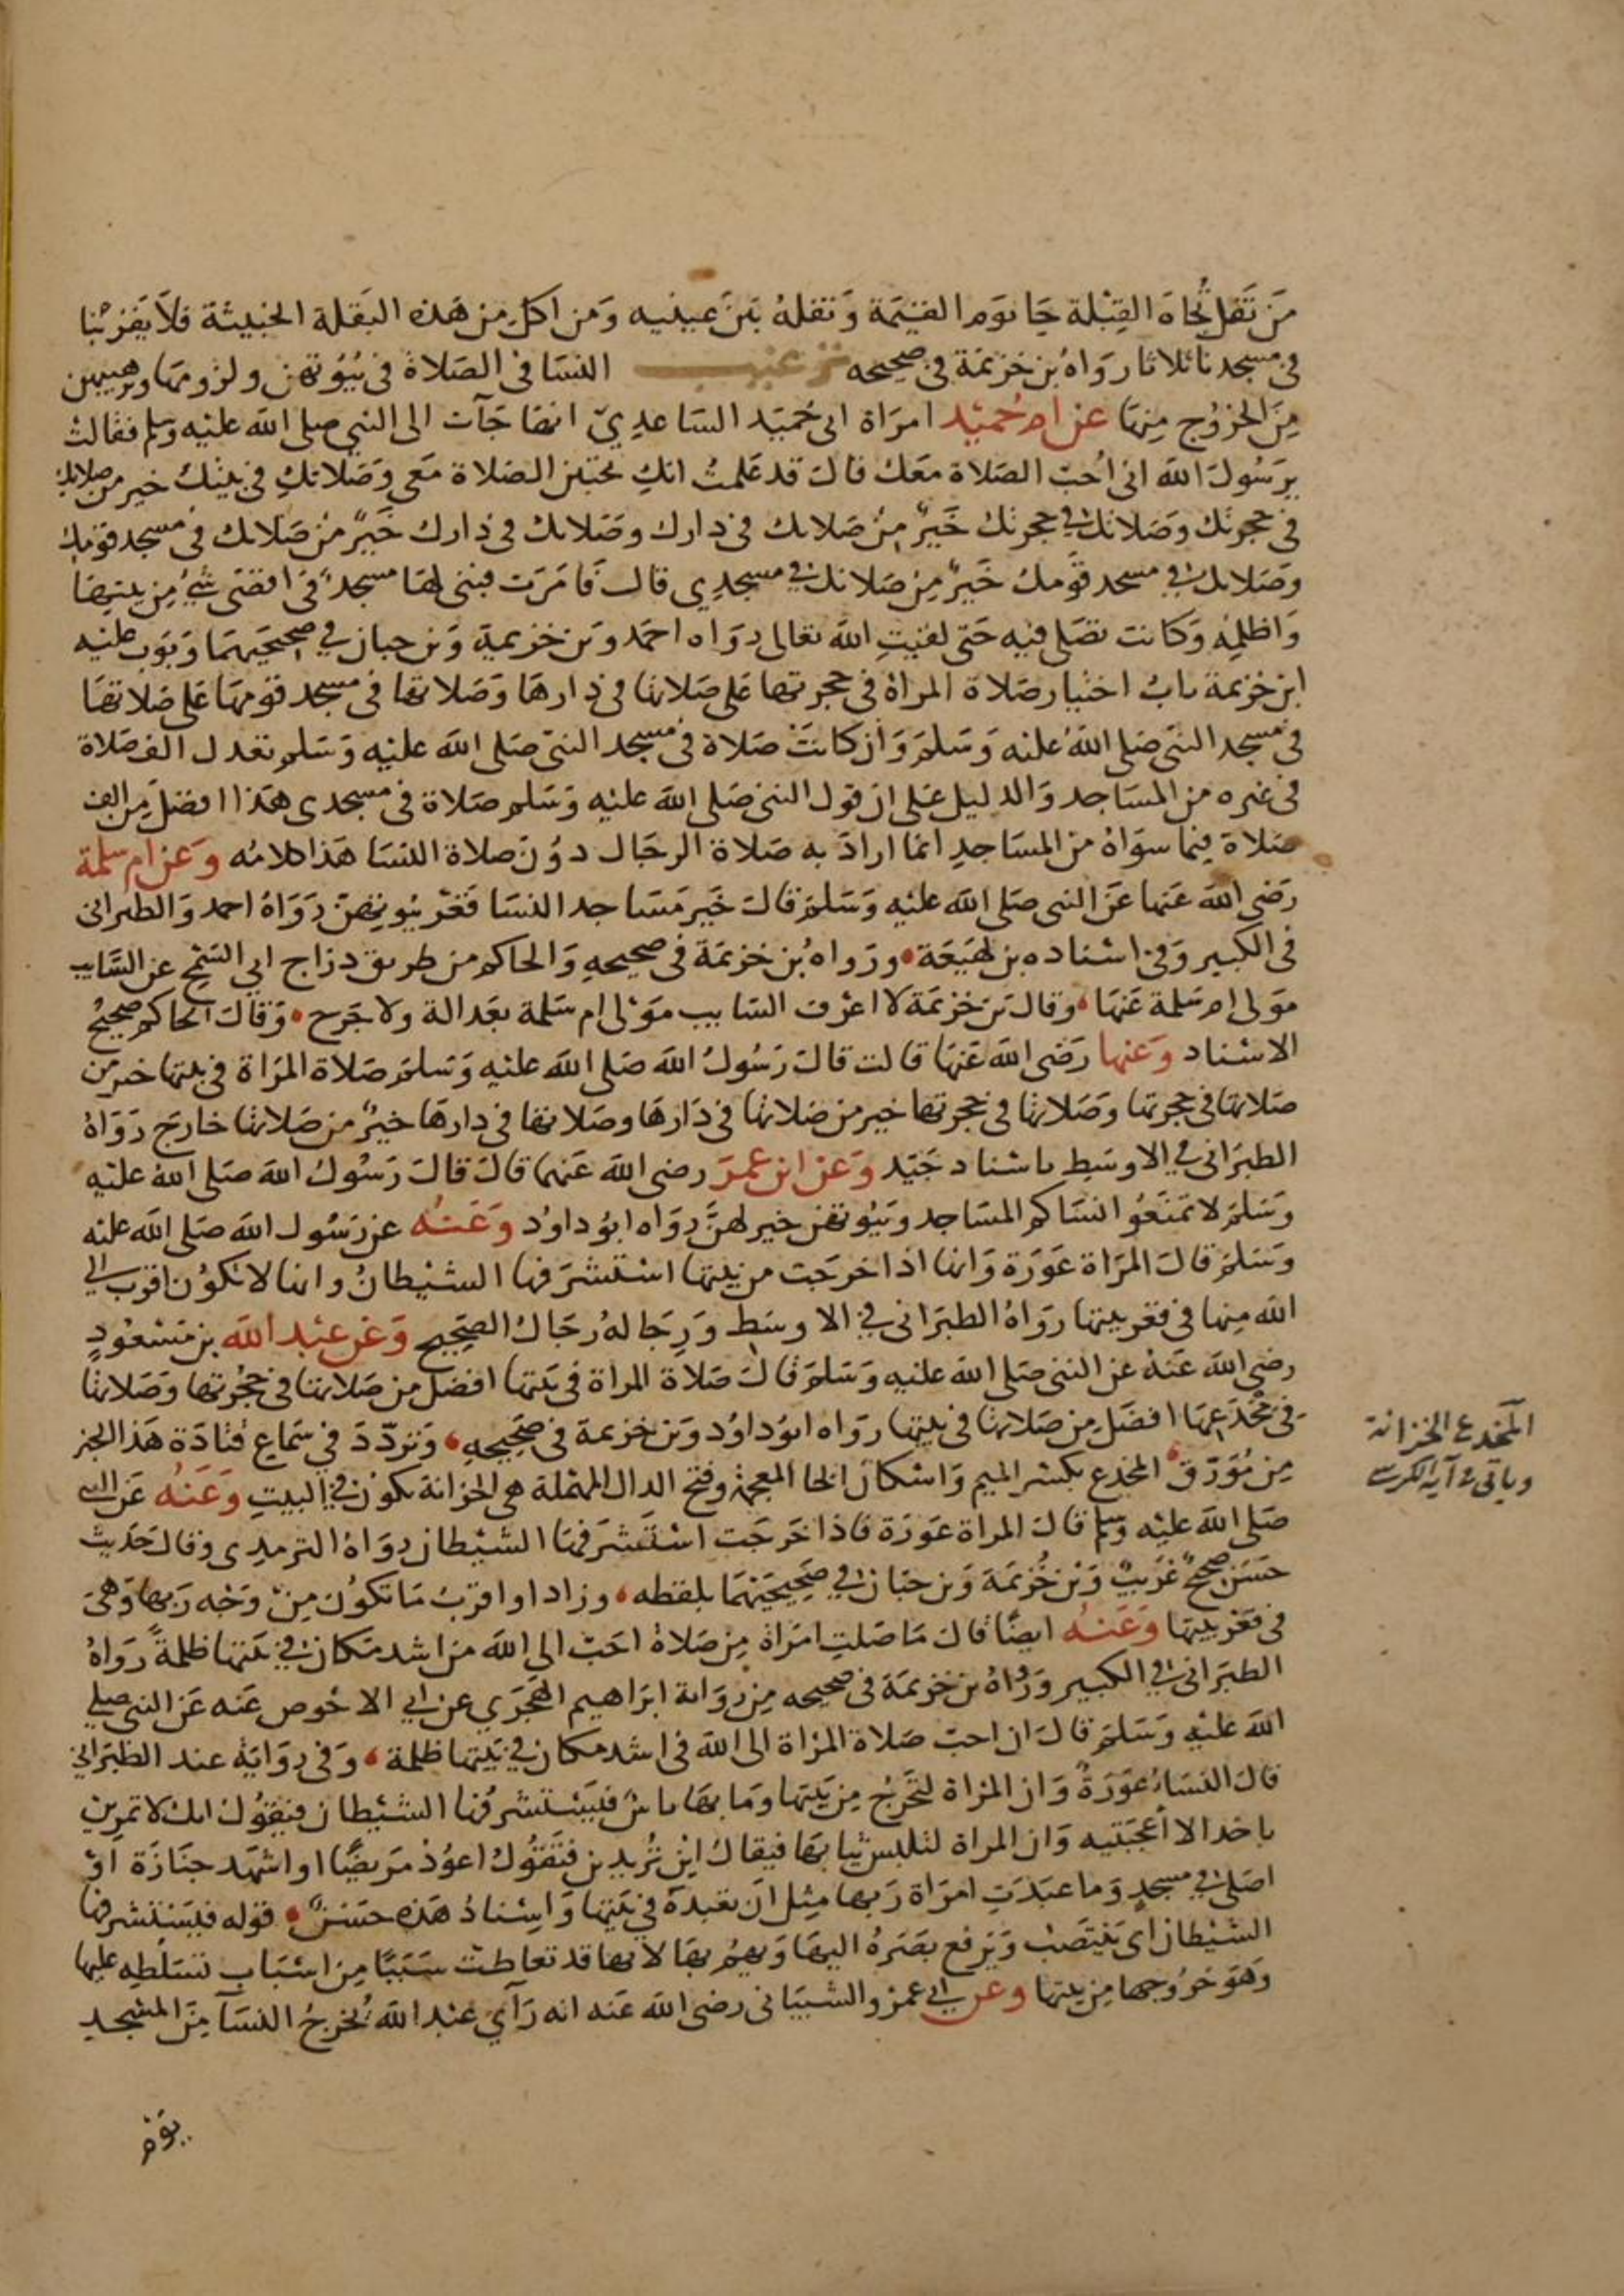 مَن تَفَل تُجاهَ القِبْلة جَا يوَم القيٰمَة وَتفلهُ بَيْنَ عينيه وَمن اكل من هَذه البَقلة الخبيثة فلاَ يَقربْنا
فى مسجدنا ثلاثا روَاهُ بن خزيمَة فى صحيحه ترغيب النسَا فى الصَلاة فى بُيُوتهن ولزومهَا وترهيبهن
مِنَ الخرُوج مِنهَا عن ام حُميْد امرَاة ابى حُمَيد السَاعدِيّ انهَا جَآت الى النبي صلى الله عليْه وسلم فقالتْ
يرَسُولَ الله انى اُحبّ الصَلاة معَك قالَ قد عَلمتُ انكِ تحبّين الصَلاة مَعى وَصَلاتكِ فى بيْتك خير من صلاتك
فى حجرتك وَصَلاتك فى حجرتك خَيرٌ مِنْ صَلاتك فى دارك وصَلاتك فى دارك خَيرٌ من صَلاتك فى مسجد قومك
وصَلاتك فى مسجد قومك خَيرٌ مِنْ صَلاتك فى مسجدِي قالَ فَامَرَت فبنى لهَا مسجدٌ فى اقصَى شىٍ مِن بيتهَا
وَاظلمِه وَكانت تصَلى فيه حَتى لقيتِ الله تعَالى روَاه احمَد وَبن خزيمة وَبن حبان فى صحيحَيهمَا وَبَوّب عليْه
ابن خزيمة بابُ اختيار صَلاة المراة فى حجرتها عَلى صَلاتها فى دارهَا وَصَلاتها فى مسجد قومهَا عَلى صَلاتهَا
فى مسجد النبى صَلى اللهُ عليْه وَسَلمَ وَان كانَتْ صَلاة فى مسجد النبىّ صَلى الله عليْه وَسَلم تعدل الف صَلاة
فى غيره من المسَاجد وَالدليل عَلى ان قول النبى صَلى الله عليْه وَسَلم صَلاة فى مسجدى هَذا افضل مِن الف
صَلاة فيما سوَاهُ من المسَاجدِ انما ارادَ به صَلاة الرجَال دوُنَ صَلاة النسَا هَذا كلامُه وَعن ام سلمة
رَضى الله عَنها عَن النبى صَلى الله عليْه وَسَلمَ قالَ خَيرُ مَسَاجد النسَا قعْر بُيوتهنّ رَوَاهُ احمد وَالطبرانى
فى الكبير وَفى اسْناده بن لهَيَعَة ورَوَاهُ بن خزيمَة فى صحيحهِ وَالحاكم من طريق دراج ابي السَّمْح عن السَّايب
موَلى ام سَلمة عَنهَا وقال بن خزيمَة لا اعْرف السَايب موْلى ام سَلمة بعَدالة ولا جَرح وَقالَ الحاكم صَحيحُ
الاسْناد وَعنها رَضى الله عَنهَا قالت قالَ رَسُولُ الله صَلى الله عليْه وَسَلمَ صَلاة المرَاة فى بيتها خير من
صَلاتها فى حجرتها وَصَلاتها فى حجرتها خير من صَلاتها فى دَارهَا وصَلاتها فى دارهَا خيرٌ من صَلاتها خارجَ رَوَاهُ
الطبَرَانى في الاوسَطِ باسْناد جَيّد وَعَن ابن عمرَ رضى الله عَنهما قالَ قالَ رَسُولُ الله صَلى الله عليْه
وَسَلمَ لا تمنَعُوا نسَاكم المسَاجد وبيُوتهن خير لهنَّ روَاه ابوُ داوُد وَعَنهُ عن رَسُول الله صَلى الله عليْه
وسَلمَ قالَ المرَاة عَورَة وَانها اذا خرجَت من بيتها اسْتشرَفها الشيْطانُ وانها لا تكوُن اقرَب الى
الله مِنها فى قعْر بيتها رَوَاهُ الطبَرَانى في الاوسَطِ وَرِجَاله رُجَالُ الصَحِيح وَعَن عبْد الله بن مَسْعُودٍ
رضى الله عَنهُ عن النبى صَلى الله عليْه وَسَلمَ قالَ صَلاة المراة فى بَيتها افضل من صَلاتها فى حُجْرتها وَصَلاتها
فى مُخدَعهَا افضَل مِن صَلاتها فى بيتها روَاه ابوُ داوُد وَبن خزيمة فى صَحِيحِهِ وَترَدّدَ فى سَمَاع قتادَة هَذا الخبر
مِن مُوَرّق المخدع بكسْر الميم وَاسْكان الخا المعجمة وفتح الدال المهْملة هى الخزانة تكوُن فى البيتِ وَعَنْهُ عَن النبى
صَلى الله عليْه وَسلم قالَ المراة عَورَة فاذا خَرجَت اسْتَشرَفهَا الشيْطان روَاهُ الترمِدى وقالَ حَديث
حَسَن صَحيحٌ غَريبٌ وَبْن خُزيمَة وَبن حبَان فى صَحِيحَيْهمَا بلفظه وزادا واقرَبُ مَا تكوُن مِنْ وَجْه رَبها وَهىَ
فى قعْر بيتها وَعَنهُ ايضًا قالَ مَا صَلتِ امرَاة مِن صَلاةٍ احَبّ الى الله مِن اشد مَكان فى بَيتها ظلمةً رَوَاهُ
الطبَرَانى فى الكبير وَرَوَاهُ بن خزيمَة فى صَحيحه مِن رِوَاية ابرَاهيم الهَجَرَي عن ابى الاحْوص عَنه عَن النبى صَلى
الله عليْه وَسَلمَ قالَ ان احبّ صَلاة المرْاة الى الله فى اشد مكان فى بَيتها ظلمة وَفى روَايَة عند الطبَرَانى
قالَ النسَاءُ عَورَةٌ وَان المرْاة لتَخرجُ مِن بَيتها وَما بهَا باسٌ فيَسْتشرفُها الشيْطان فيَقوُل انك لا تمرين
باحد الا اعجبْتيه وَان المراة لتلبسُ ثيابهَا فيقالُ اينَ تُريدين فتَقوُل اعوُدُ مَريضًا او اشهَد جنَازَة اوْ
اصَلى فى مسجدٍ وَما عبَدَتِ امرَاة رَبها مِثل ان تعْبدهُ فى بَيتها وَاسْنادُ هَذه حَسَنٌ قوله فيَسْتشرفها
الشيْطان اى يَنتَصبُ وَيَرفع بصَرَهُ اليهَا وَيَهمّ بهَا لانها قد تعاطتْ سَبَبًا مِن اسْبَاب تسَلطِه عليها
وَهوَ خرُوجها مِن بيتها وعن ابى عمرْو الشيبَانى رضى الله عَنه انه رَآي عبْد الله يُخرجُ النسَآ مِنَ المسْجد
يَوْم
المخدع الخزانة
وياتى فى آية الكرسى